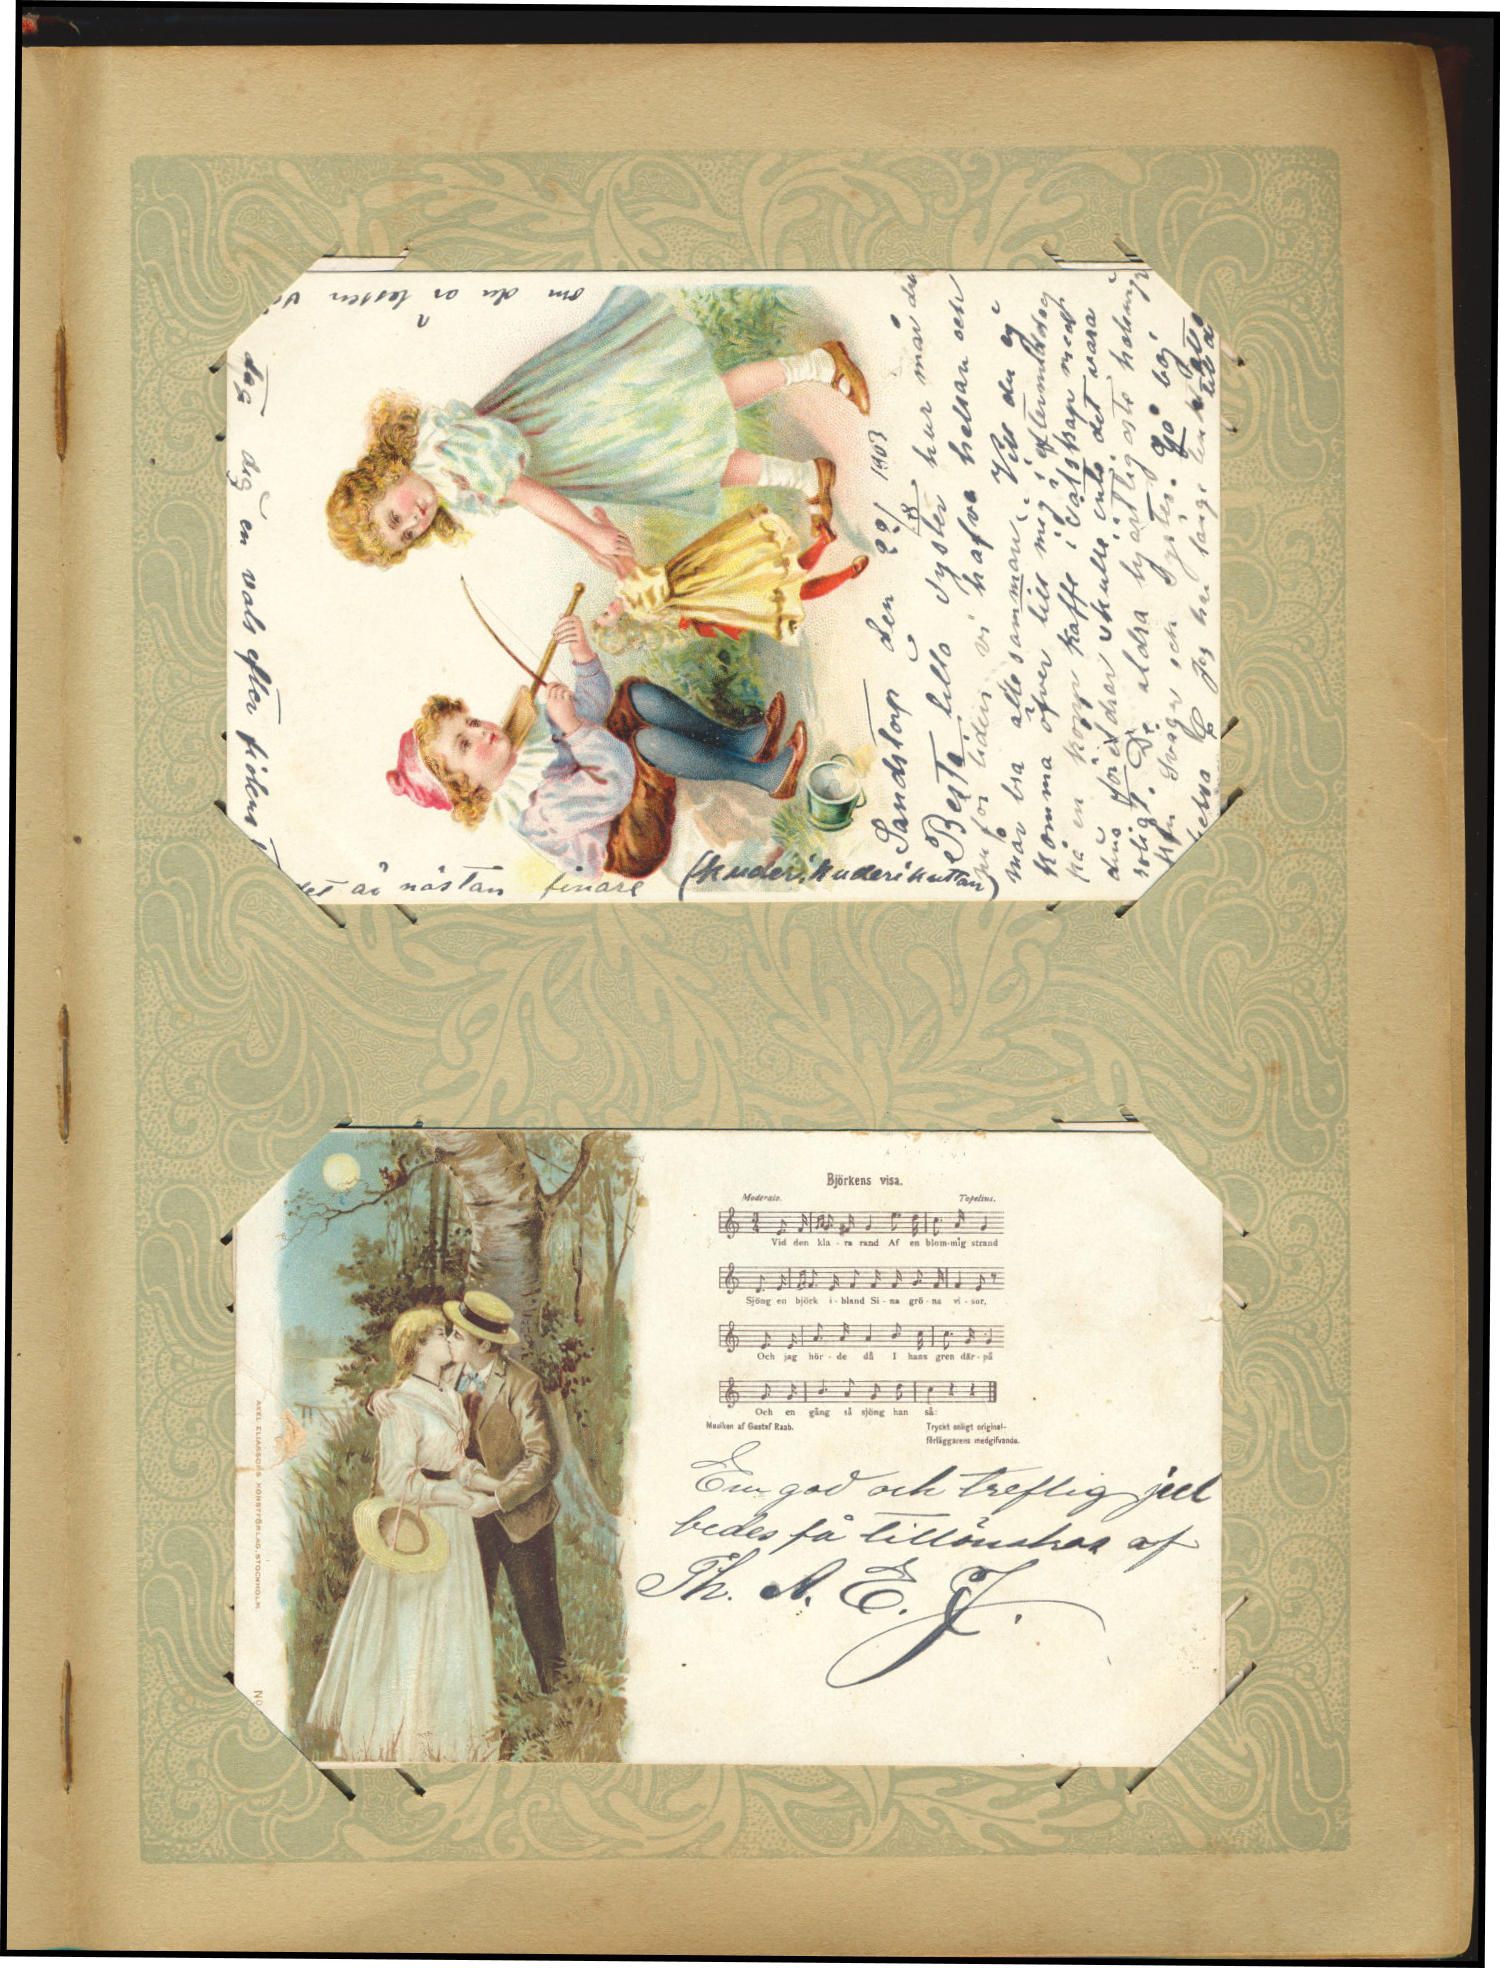 Sandstorp den 22/8 1903
Bästa lilla syster hur mår du
nu för tiden vi hafva helsan och
mår bra allesamman. Vill du ej
komma öfver till mig i eftermiddag
på en kopp kaffe i sälskap med
dina föräldrar skulle inte det vara
roligt. De aldra hjärtlig aste helsning
från Svåger och Syster. Ajö båj
helsa Jag har länge
(kuderi, kuderikuttan)
det är nästan finare
om du är lessen så
tag dig en vals efter fiolens
Björkens visa.
Moderato. Topelius.
Vid den kla - ra rand Af en blom-mig strand
Sjöng en björk i - bland Si - na grö - na vi - sor,
Och jag hör - de då I hans gren där - på
Och en gång så sjöng han så:
Musiken af Gustaf Raab. Tryckt enligt original-
förläggarens medgifvande.
En god och treflig jul
bedes få tillönskas af
Th. A. E. J.
AXEL ELIASSONS KONSTFÖRLAG, STOCKHOLM
No